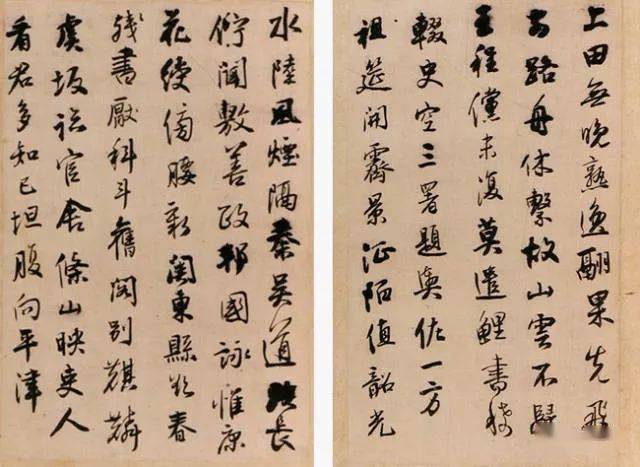 上田無晚熟逸翮果先飛
路舟休繫故山雲不歸
王程儻未復莫遣鯉書稀
輟史空三署題輿佐一方
祖筵開霽景征陌值韶光
水陸風煙隔秦吳道路長
佇聞敷善政邦國詠惟康
花綬傍腰新關東縣欲春
殘書厭科斗舊閣別麒麟
虞坂臨官舍條山映吏人
看君多知己坦腹向平津